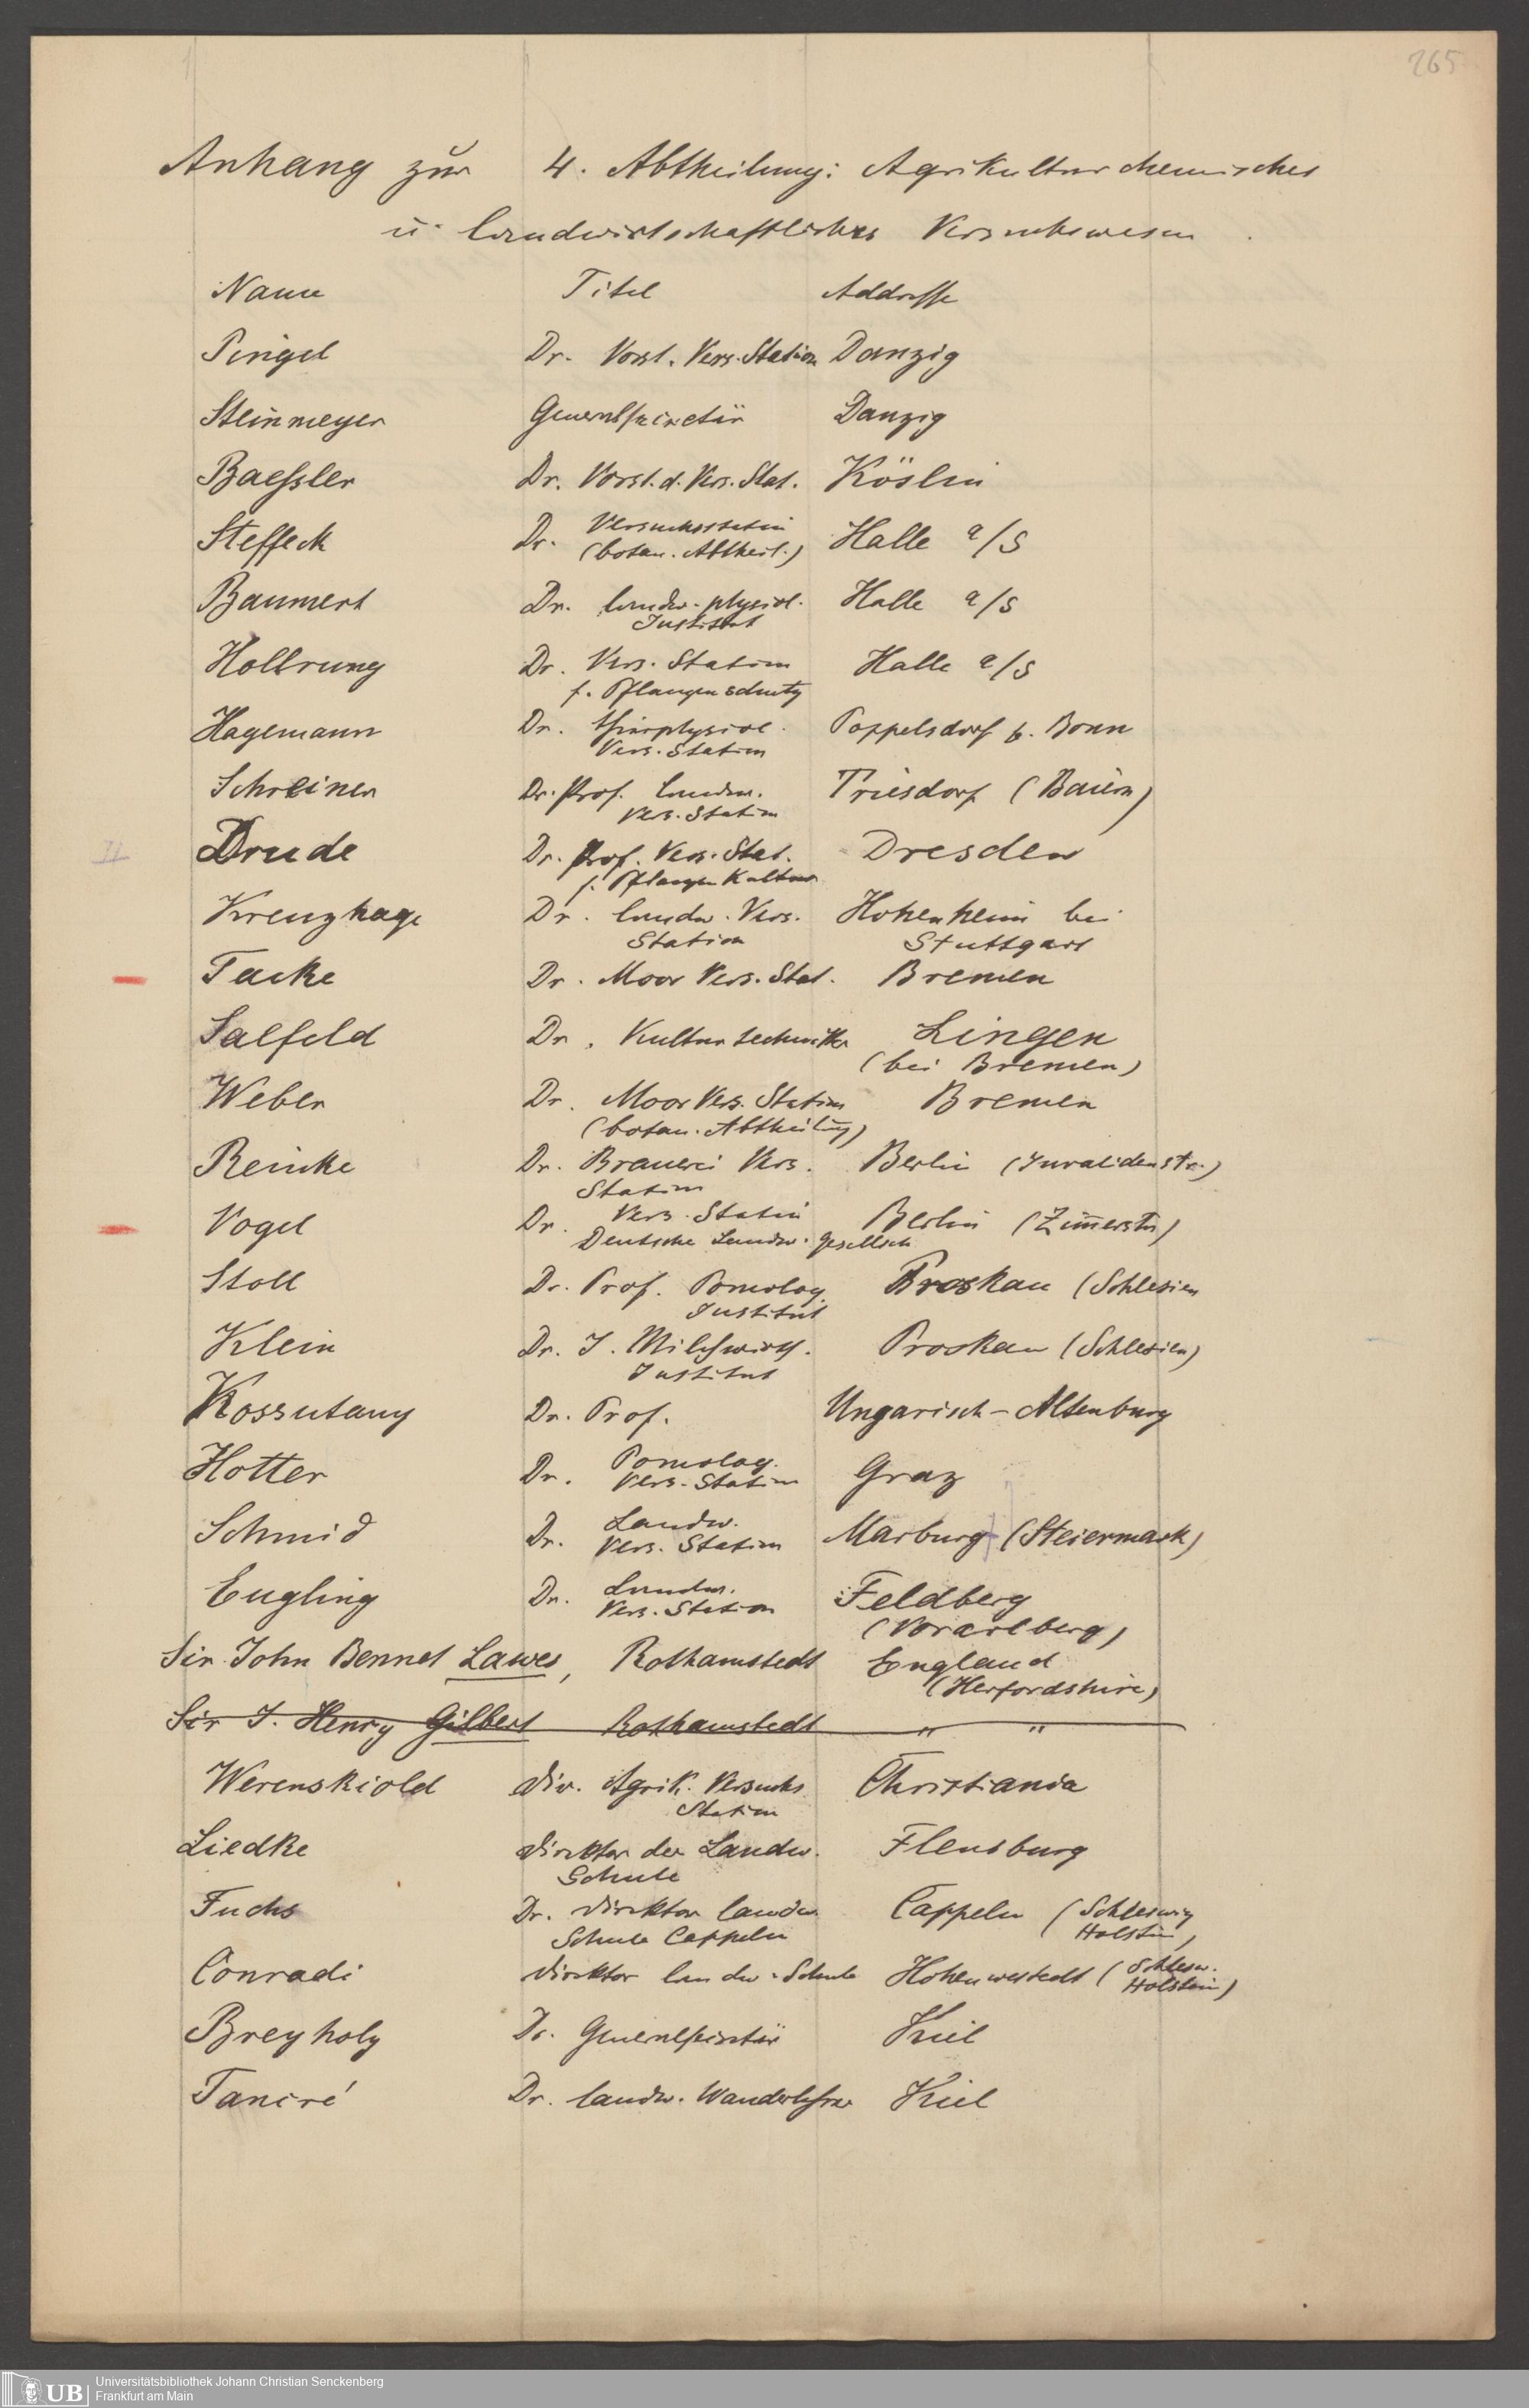 265
Anhang zur 4. Abtheilung: Agrikulturchemisches
u. landwirtschaftliches Versuchswesen
Name Titel Addresse
Pingel Dr. Vorst. Vers. Station Danzig
Steinmeyer Generalsecretär Danzig
Baessler Dr. Vorst. d. Vers. Stat. Köslin
Steffeck Dr. Versuchsstation Halle a/S
(botan. Abtheil.)
Baumert Dr. landw. physiol. Halle a/S
Institut
Hollrung Dr. Vers. Station Halle a/S
f. Pflanzenschutz
Hagemann Dr. thierphysiol. Poppelsdorf b. Bonn
Vers. Station
Schreiner Dr. Prof. Landw. Triesdorf (Baiern)
Vers. Station
II Drude Dr. Prof. Vers. Stat. Dresden
f. Pflanzen Kultur
Kreuzhage Dr. landw. Vers. Hohenheim bei
Station Stuttgart
Tacke Dr. Moor Vers. Stat. Bremen
Salfeld Dr. Kulturtechniker Lingen
(bei Bremen)
Weber Dr. Moor Vers. Station Bremen
(botan. Abtheilung)
Reinke Dr. Brauerei Vers. Berlin (Invalidenstr.)
Station
Vogel Dr. Vers. Station Berlin (Zim̄erstr)
Deutsche Landw. Gesellsch
Stoll Dr. Prof. Pomolog. Proskau (Schlesien
Institut
Klein Dr. J. Milchwirth. Proskau (Schlesien)
Institut
Kossutany Dr. Prof. Ungarisch-Altenburg
Hotter Dr. Pomolog. Graz
Vers. Station
Schmid Dr. Landw. Marburg (Steiermark)
Vers. Station
Eugling Dr. Landw. Feldberg
Vers. Station (Vorarlberg)
Sir John Bennet Lawes, Rothamstedt England
(Herfordshire)
Sir J. Henry Gilbert Rothamstedt " "
Werenskiold Dir. Agrik. Versuchs Christiania
Station
Liedke Direktor der Landw. Flensburg
Schule
Fuchs Dr. Direktor landw. Cappeln (Schleswig
Schule Cappeln Holstein)
Conradi Direktor landw. Schule Hohenwestedt (Schlesw.
Holstein)
Breyholz Dr. Generalsecretär Kiel
Tancré Dr. landw. Wanderlehrer Kiel
UB Universitätsbibliothek Johann Christian Senckenberg
Frankfurt am Main